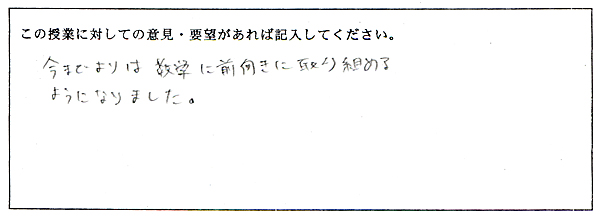 この授業に対しての意見・要望があれば記入してください。
今までよりは数学に前向きに取り組める
ようになりました。